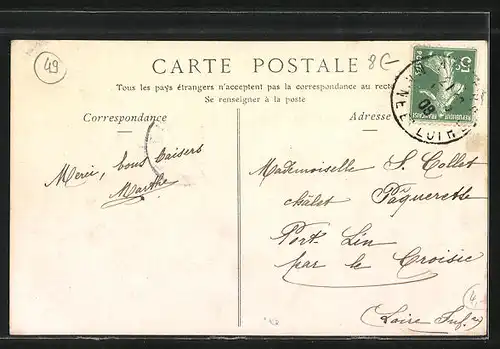 49
8 €
CARTE POSTALE
Tous les pays étrangers n'acceptent pas la correspondance au recto
Se renseigner à la poste
Correspondance
Adresse
5c
POSTES
REPUBLIQUE FRANÇAISE
08
LOIRE
Merci, bons baisers
Marthe
Mademoiselle S. Collet
châlet Pâquerette
Port Lin
par le Croisic
(Loire Inf.re)
4